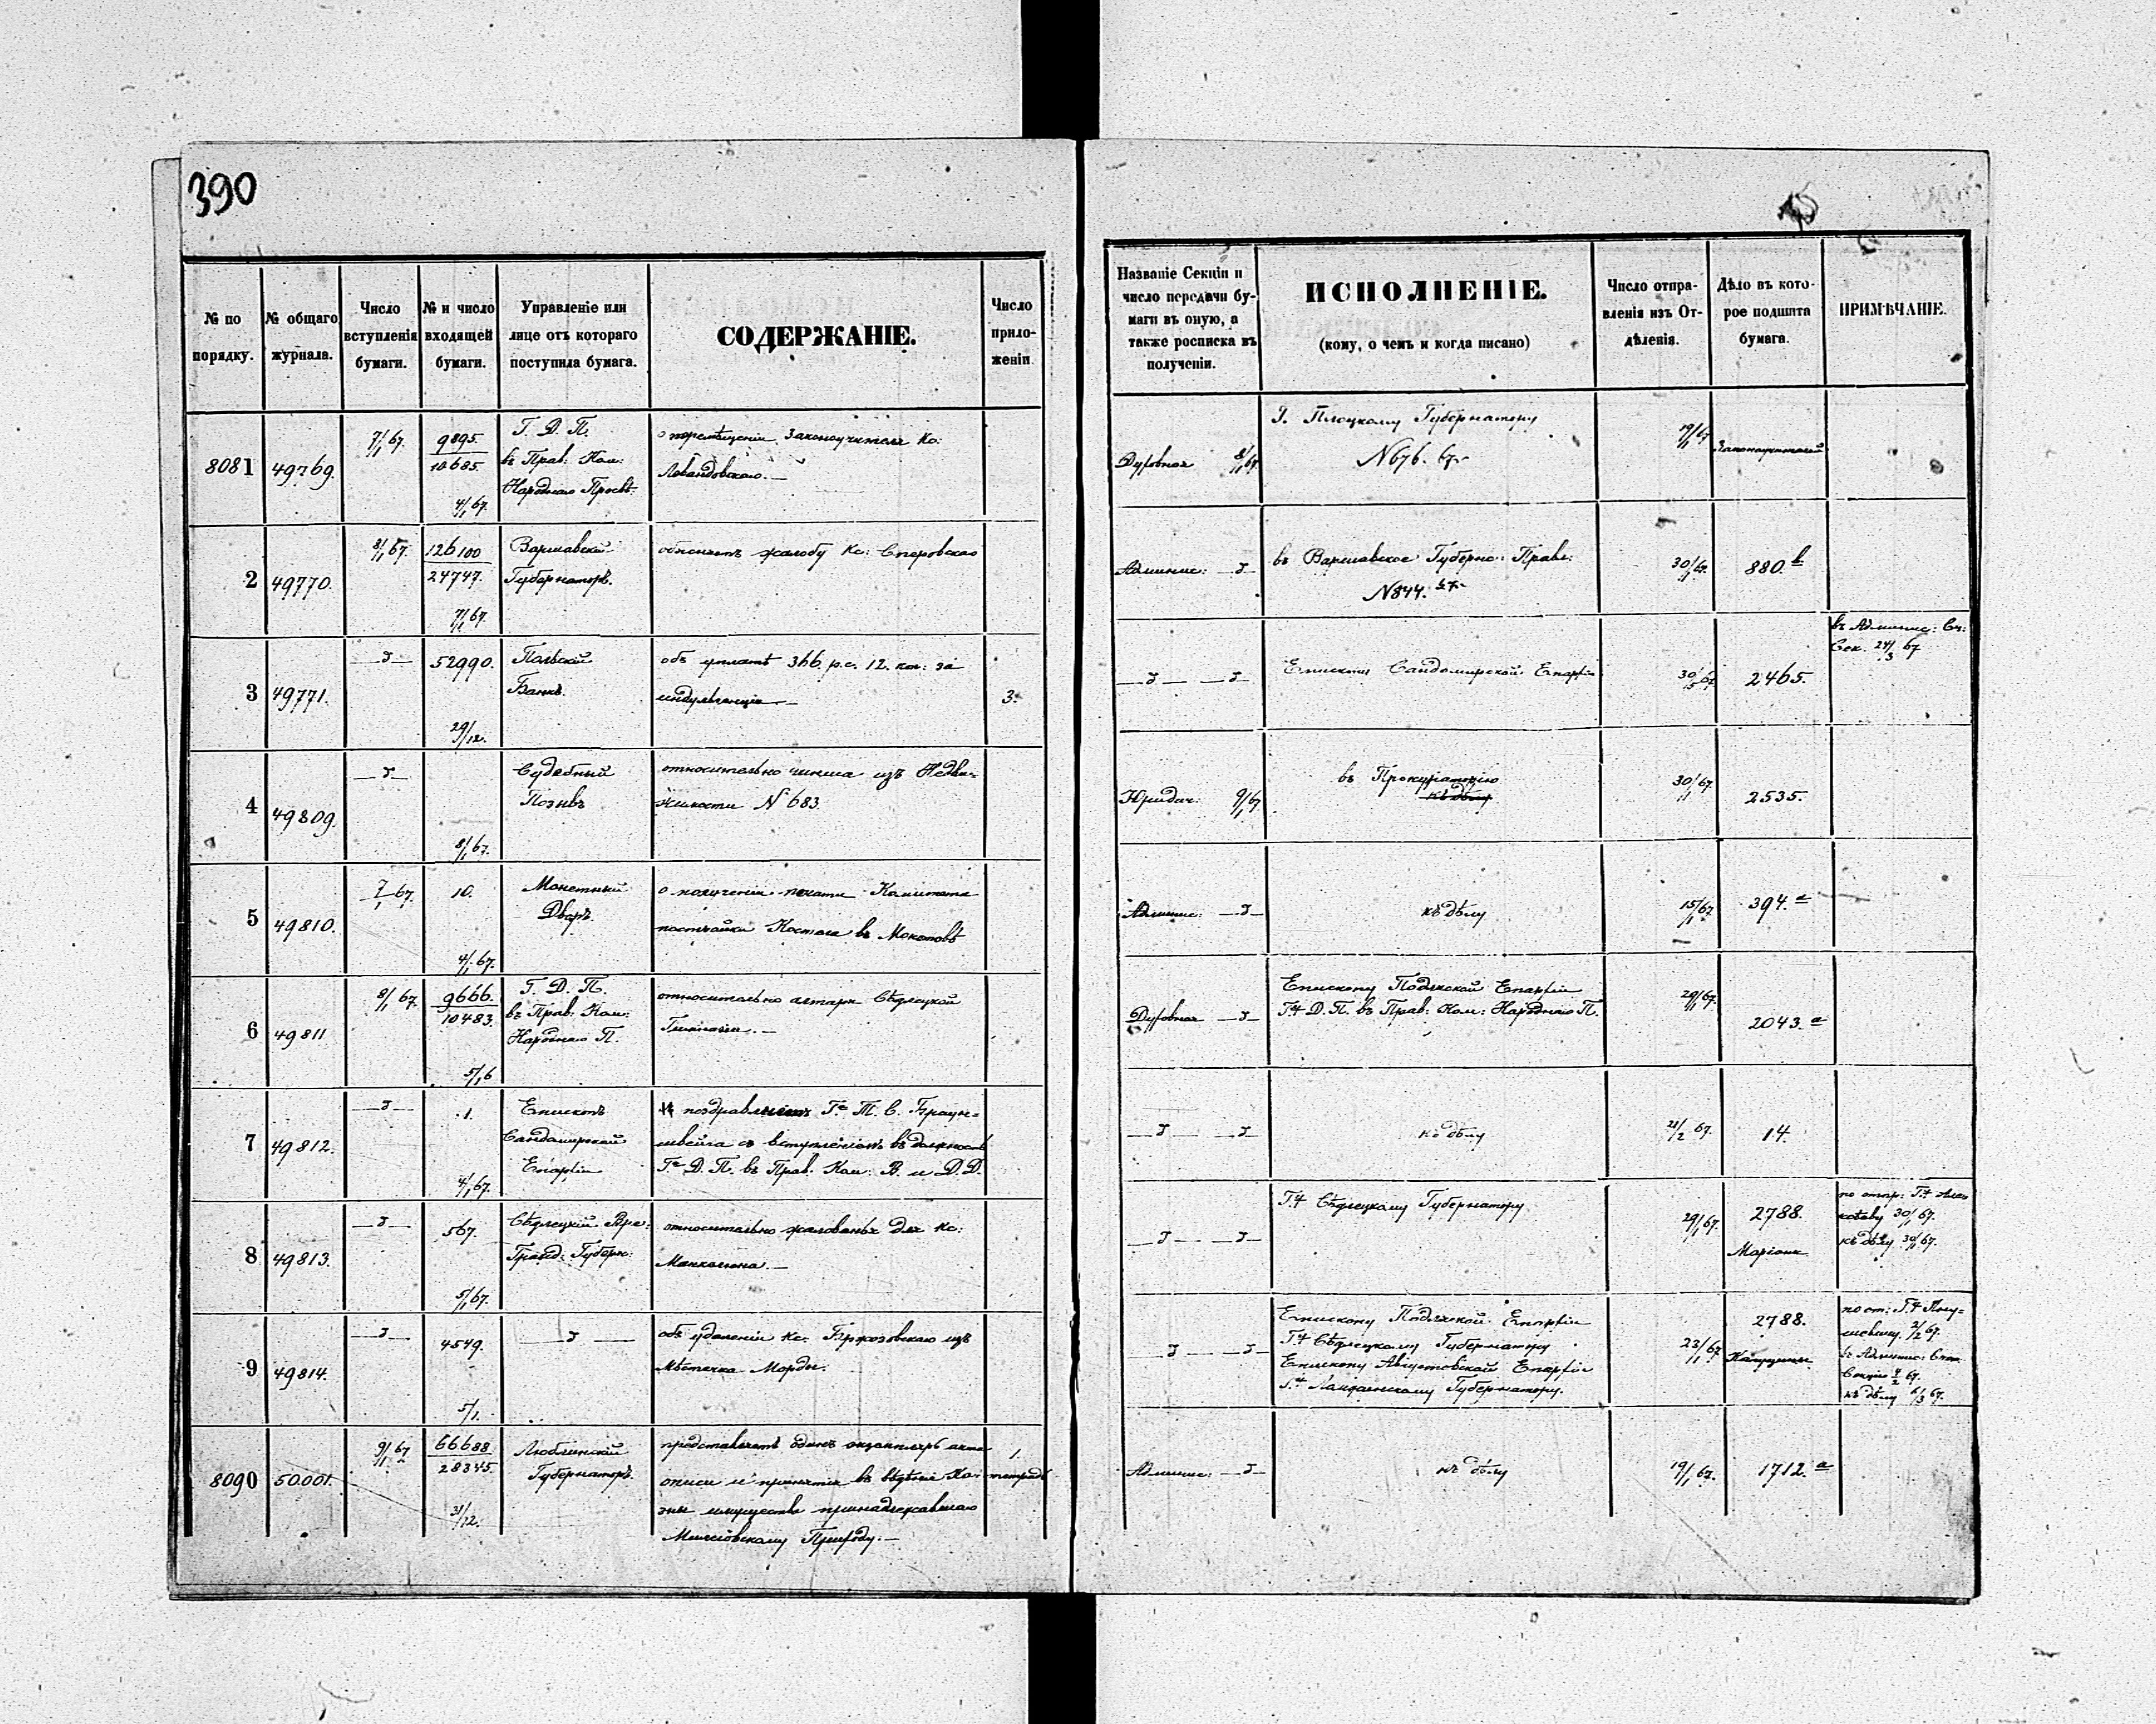 390
№ по порядку.
№ общаго журнала.
Число вступленія бумаги.
№ и число входящей бумаги.
Управленіе или лице отъ котораго поступила бумага.
СОДЕРЖАНІЕ.
Число прило-
женій
Названіе Секціи и
число передачи бу-
маги въ оную, а
также росписка въ
полученіи.
ИСПОЛНЕНІЕ.
(кому, о чемъ и когда писано)
Число отпра-
вленія изъ От-
дѣленія.
Дѣло въ кото-
рое подшита
бумага.
ПРИМѢЧАНІЕ.
8081
49769.
7/1 67.
9895
10685
4/1 67.
Г. Д. П.
въ Прав: Ком:
Народнаго Просвѣ:
о перемѣщеніи Законоучителя Кс:
Левандовскаго.—
Духовная 8/1 67
Г. Плоцкому Губернатору
N 676. 67.
19/1 67
Законоучителей
2
49770.
8/1 67.
126100
24747.
7/1 67.
Варшавскій
Губернаторъ.
жалобу Кс:
Админис: —д—
въ Варшавское Губерн: Правл:
N 844. 67.
30/1 67.
880. b
3
49771.
—д—
52990.
29/12.
Польскій
Банкъ.
объ уплатѣ 366 р.с. 12. коп: за
индульгенціи —
3.
—д— —д—
Епископу Сандомирской Епархіи
30/5 67
2465.
въ Админис: Сч:
Сек. 24/3 67
4
49809.
—д—
8/1 67.
Судебный
Позывъ
относительно чинша изъ Недви-
жимости N 683.
Юридич: 9/1 67
въ Прокураторію
къ дѣлу
30/1 67.
2535.
5
49810.
7/1 67.
10.
4/1 67.
Монетный
Дворъ.
о полученіи печати Комитета
постройки Костела въ Мокотовѣ
Админис: —д—
къ дѣлу
15/1 67
394. a
6
49811
8/1 67.
9666.
10483.
5/1 6
Г. Д. П.
въ Прав: Ком:
Народнаго П.
относительно алтаря Сѣдлецкой
Гимназіи.—
Духовная —д—
Епископу Подляской Епархіи
Гу Д. П. въ Прав: Ком: Народнаго П.
29/1 67.
2043. a
7
49812.
—д—
1.
4/1 67.
Епископъ
Сандомирской
Епархіи
поздравляетъ Га Т. С. Браун-
швейга съ вступленіемъ въ должность
Га Д. П. въ Прав. Ком: В. и Д. Д.
—д— —д—
къ дѣлу
21/2 67.
14.
8
49813.
—д—
567.
5/1 67.
Сѣдлецкій
Гражд: Губерн:
относительно жалованья для Кс:
—д— —д—
Гу Сѣдлецкому Губернатору
29/1 67.
2788.
Маріане
по отпр: Гу
30/1 67.
къ дѣлу 30/1 67.
9
49814.
—д—
4549.
5/1.
—д—
объ удаленіи Кс: Бржозовскаго изъ
Мѣстечка Морды.
—д— —д—
Епископу Подляской Епархіи
Гу Сѣдлецкому Губернатору
Епископу Августовской Епархіи
Гу Ломжинскому Губернатору.
23/1 67
2788.
Капуцины
по от: Гу
2/2 67.
въ Админис:
Секцію 4/2 67.
къ дѣлу 6/3 67.
8090
50.001.
9/1 67
66688
28345.
31/12.
Люблинскій
Губернаторъ.
представляетъ одинъ экземпляръ акта
описи и принятія въ вѣдѣніе Ка-
зны имущества принадлежавшаго
Приходу.—
1.
тетрадь
Админис: —д—
къ дѣлу
19/1 67.
1712. a